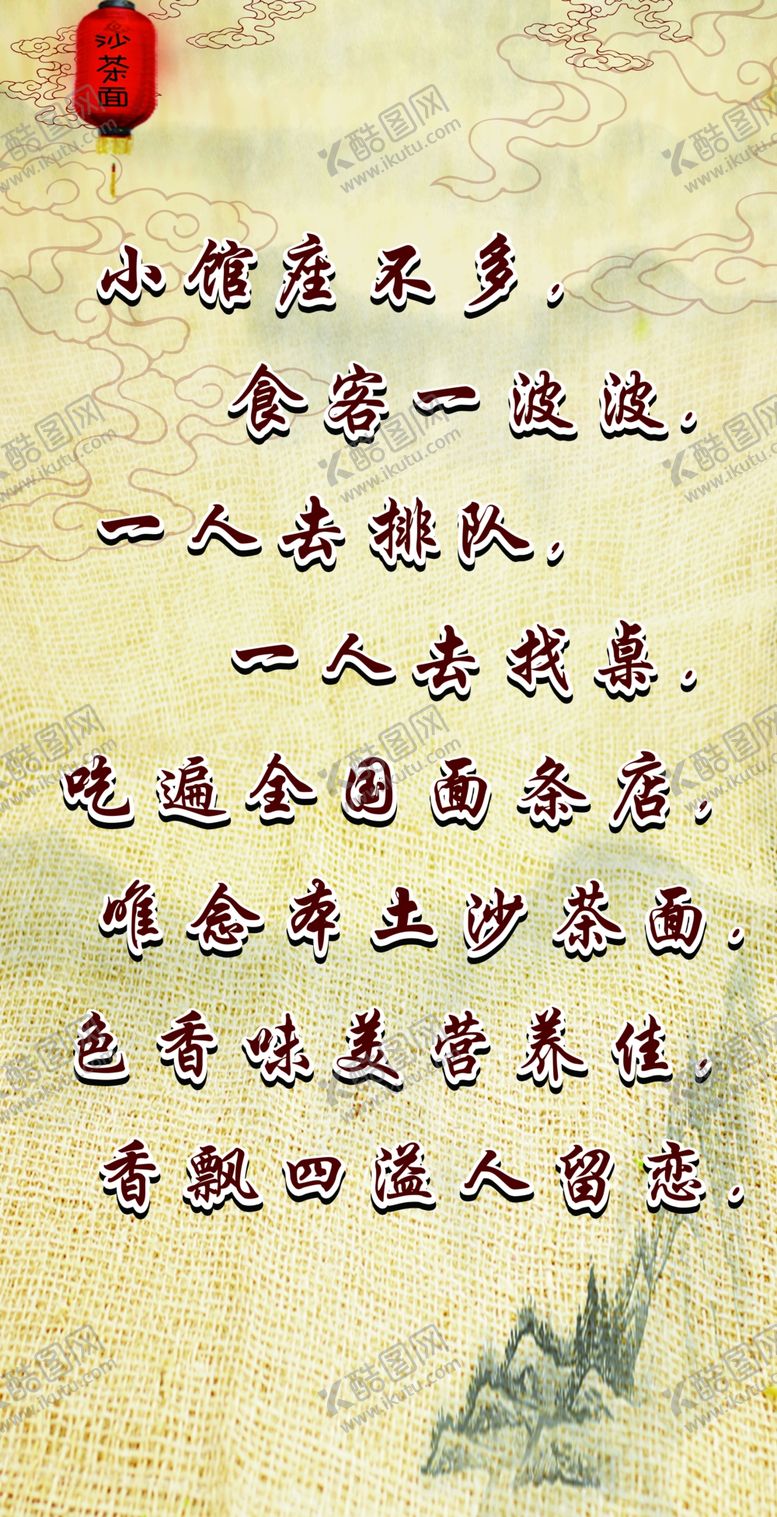 沙茶面
小馆座不多，
食客一波波．
一人去排队，
一人去找桌．
吃遍全国面条店，
唯念本土沙茶面．
色香味美营养佳，
香飘四溢人留恋．
酷图网
www.ikutu.com